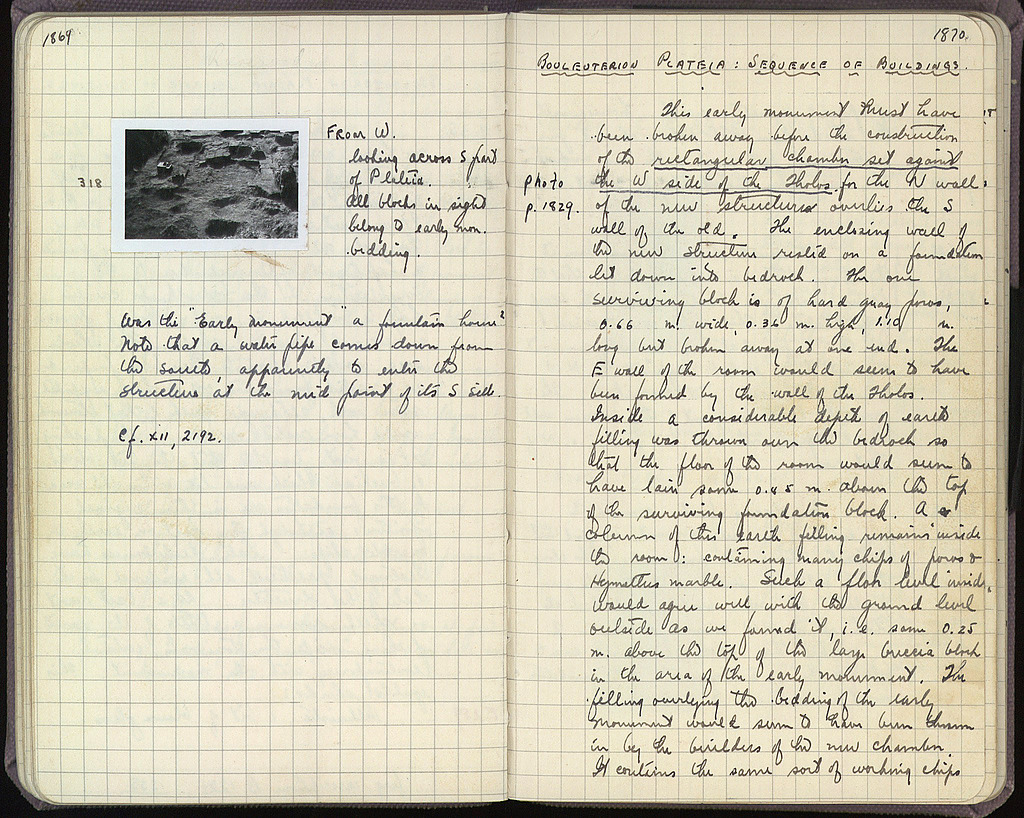 1869
318
From W.
looking across S part
of Plateia.
All blocks in sight
belong to early mon.
bedding.
Was the "Early Monument" a fountain house?
Note that a water pipe comes down from
the south, apparently to enter the
structure at the mid point of its S side.
Cf. XII, 2192.
1870
BOULEUTERION PLATEIA: SEQUENCE OF BUILDINGS.
This early monument must have
been broken away before the construction
of the rectangular chamber set against
photo
p. 1829.
the W side of the Tholos for the N wall
of the new structure overlies the S
wall of the old. The enclosing wall of
the new structure rested on a foundation
let down into bedrock. The one
surviving block is of hard gray poros,
0.66 m. wide, 0.36 m. high, 1.10 m.
long but broken away at one end. The
E wall of the room would seem to have
been formed by the wall of the Tholos.
Inside a considerable depth of earth
filling was thrown over the bedrock so
that the floor of the room would seem to
have lain some 0.85 m. above the top
of the surviving foundation block. A
column of this earth filling remains inside
the room: containing many chips of poros &
Hymettus marble. Such a floor level inside
would agree well with the ground level
outside as we found it, i.e. some 0.25
m. above the top of the large breccia block
in the area of the early monument. The
filling overlying the bedding of the early
monument would seem to have been thrown
in by the builders of the new chamber.
It contains the same sort of working chips